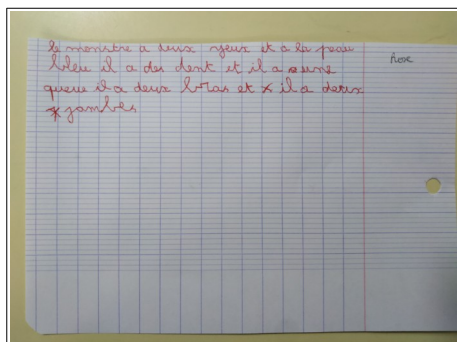 le monstre a deux yeux et a la peau
bleu il a des dent et il a une
queue il a deux bras et x il a deux
jambes
Rose